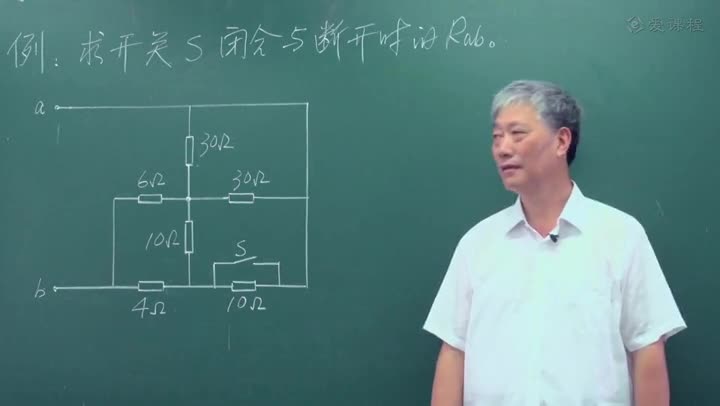 爱课程
例：求开关S闭合与断开时的Rab。
a
30Ω
6Ω
30Ω
10Ω
S
b
4Ω
10Ω